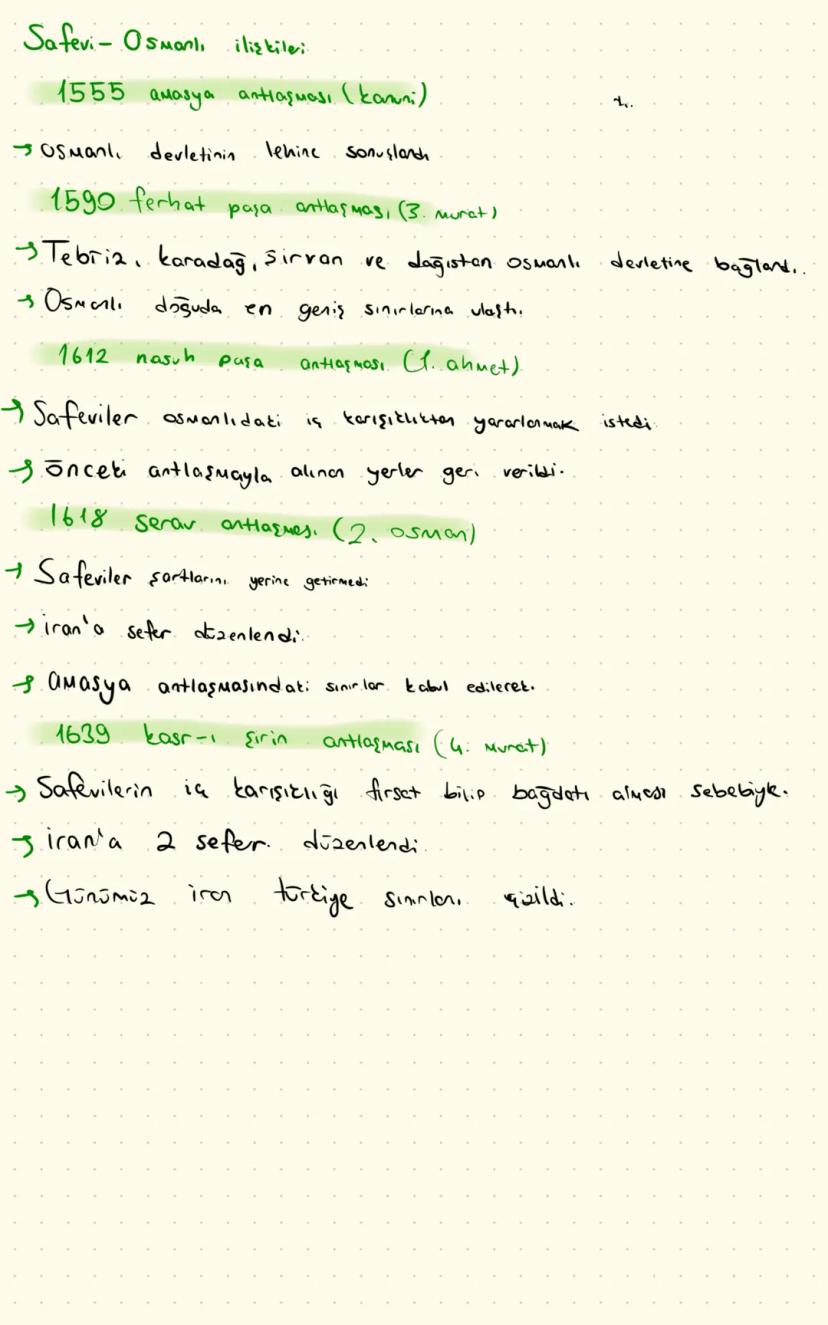 Safevi - Osmanlı ilişkileri
1555 amasya antlaşması (kanuni)
→ osmanlı devletinin lehine sonuçlandı
1590 ferhat paşa antlaşması (3. murat)
→ Tebriz, karadağ, şirvan ve dağıstan osmanlı devletine bağlandı.
→ Osmanlı doğuda en geniş sınırlarına ulaştı.
1612 nasuh paşa antlaşması (1. ahmet)
→ Safeviler osmanlıdaki iç karışıklıktan yararlanmak istedi
→ önceki antlaşmayla alınan yerler geri verildi.
1618 serav antlaşması (2. osman)
→ Safeviler şartlarını yerine getirmedi
→ iran'a sefer düzenlendi.
→ amasya antlaşmasındaki sınırlar kabul edilerek.
1639 kasr-ı şirin antlaşması (4. murat)
→ Safevilerin iç karışıklığı fırsat bilip bağdatı alması sebebiyle.
→ iran'a 2 sefer düzenlendi
→ Günümüz iran türkiye sınırları çizildi.